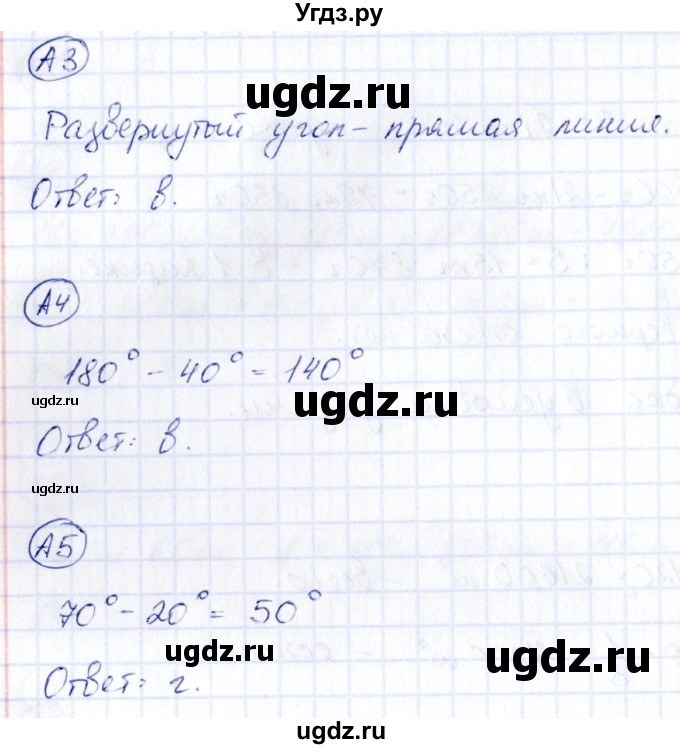 Угдз.ру
А3
ugdz.ru
Развернутый угол - прямая линия.
Ответ: в.
А4
180° - 40° = 140°
ugdz.ru
ugdz.ru
Ответ: в.
ugdz.ru
А5
70° - 20° = 50°
ugdz.ru
ugdz.ru
Ответ: г.
ugdz.ru